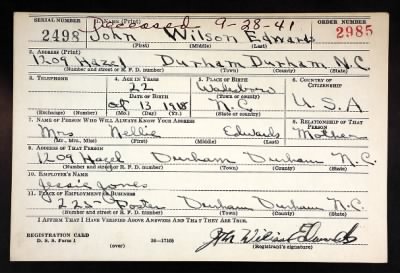 SERIAL NUMBER 1. NAME (Print) ORDER NUMBER
Deceased 9-28-41
2498 John Wilson Edwards 2985
(First) (Middle) (Last)
2. ADDRESS (Print)
1209 Hazel Durham Durham N.C.
(Number and street or R. F. D. number) (Town) (County) (State)
3. TELEPHONE 4. AGE IN YEARS 5. PLACE OF BIRTH 6. COUNTRY OF CITIZENSHIP
22
DATE OF BIRTH (Town or county)
Oct 13 1918 N.C. U.S.A
(Exchange) (Number) (Mo.) (Day) (Yr.) (State or country)
7. NAME OF PERSON WHO WILL ALWAYS KNOW YOUR ADDRESS 8. RELATIONSHIP OF THAT PERSON
Mrs Nellie Edwards Mother
(Mr., Mrs., Miss) (First) (Middle) (Last)
9. ADDRESS OF THAT PERSON
1209 Hazel Durham Durham N.C.
(Number and street or R. F. D. number) (Town) (County) (State)
10. EMPLOYER'S NAME
Jessie Jones
11. PLACE OF EMPLOYMENT OR BUSINESS
225 Foster Durham Durham N.C.
(Number and street or R. F. D. number) (Town) (County) (State)
I AFFIRM THAT I HAVE VERIFIED ABOVE ANSWERS AND THAT THEY ARE TRUE.
REGISTRATION CARD
D. S. S. Form 1 (over) 16—17105 John Wilson Edwards
(Registrant's signature)